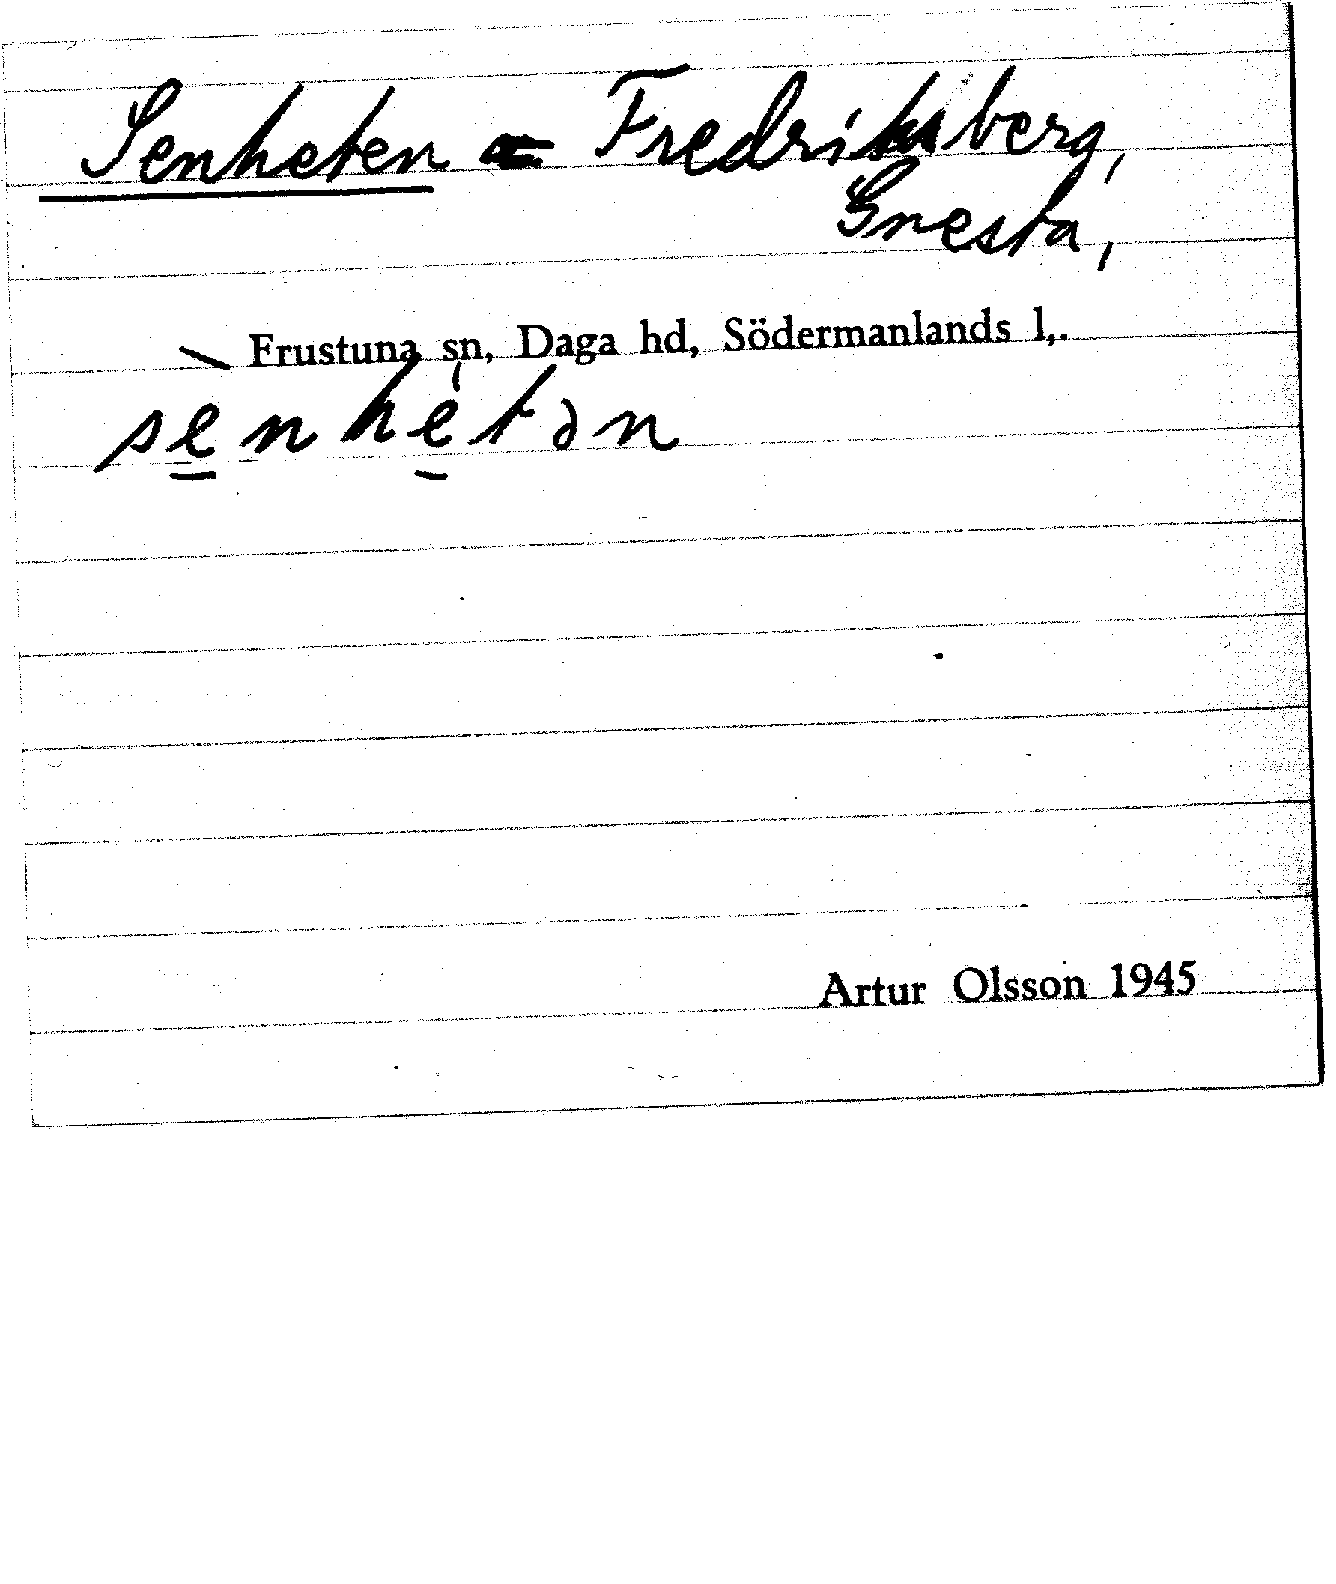 Senheten = Fredriksberg,
Gnesta,
Frustuna sn, Daga hd, Södermanlands l,.
se̲nhè̲tən
Artur Olsson 1945